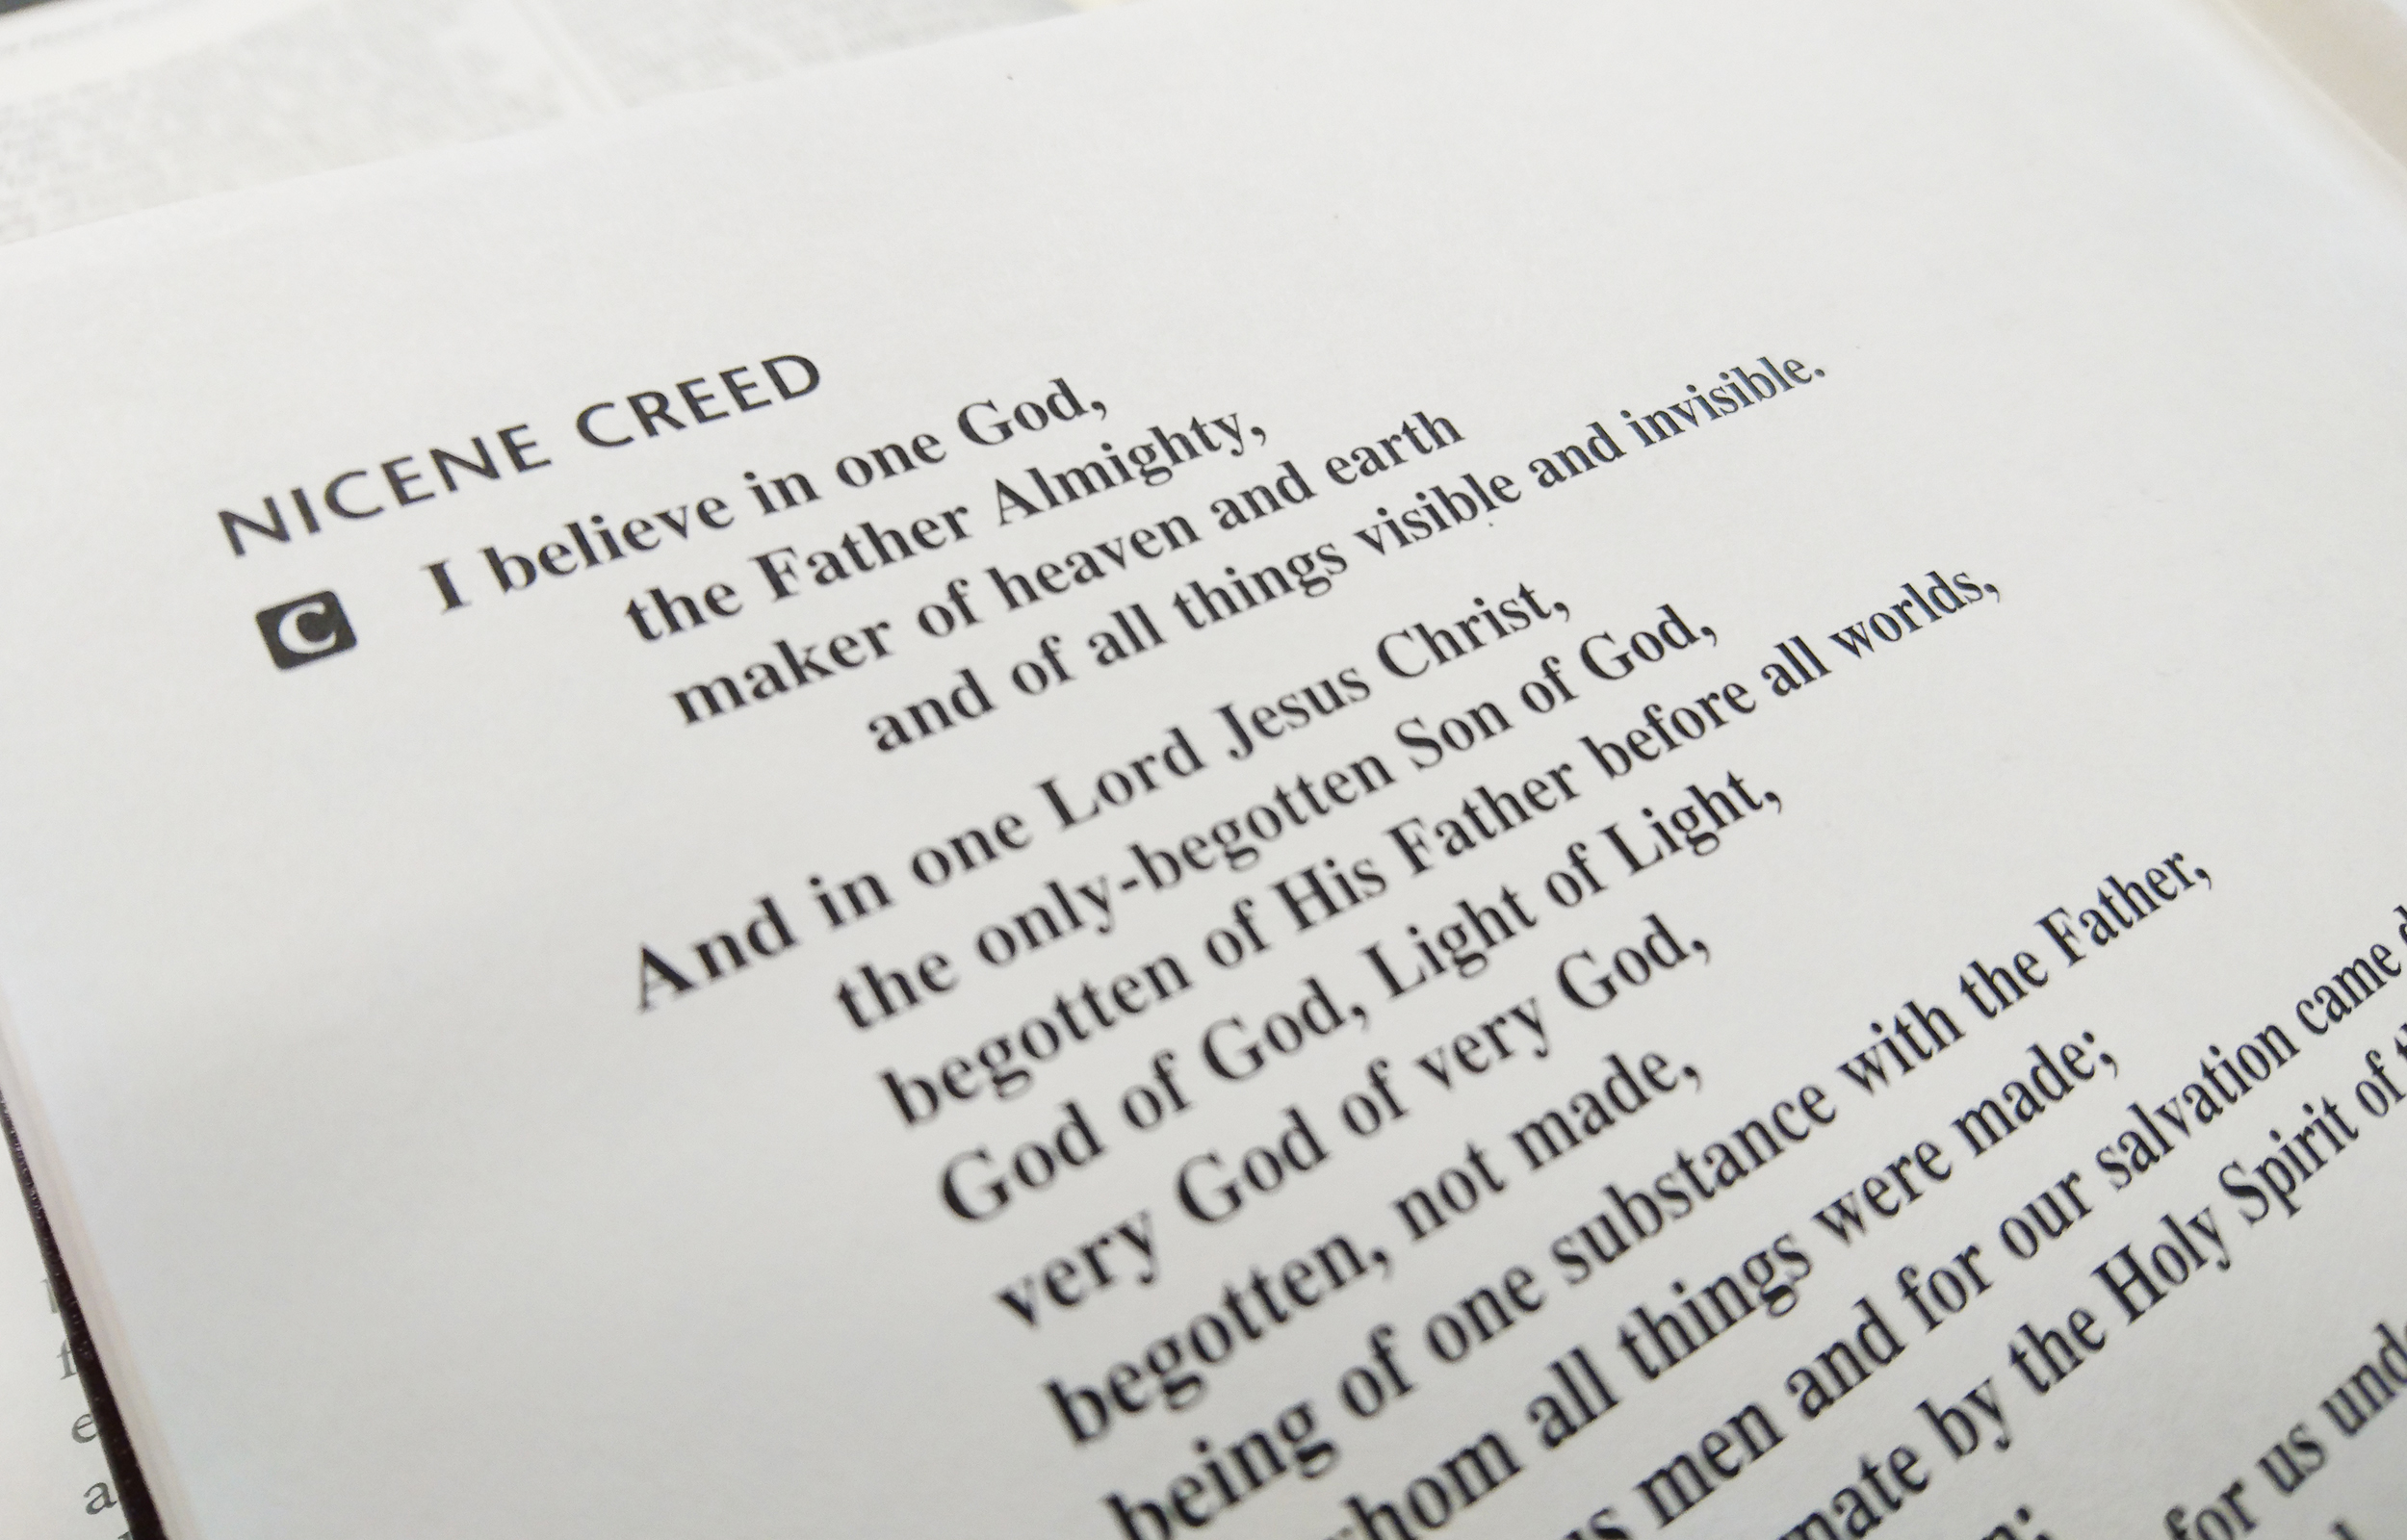 NICENE CREED
C I believe in one God,
the Father Almighty,
maker of heaven and earth
and of all things visible and invisible.
And in one Lord Jesus Christ,
the only-begotten Son of God,
begotten of His Father before all worlds,
God of God, Light of Light,
very God of very God,
begotten, not made,
being of one substance with the Father,
all things were made;
men and for our salvation came
by the Holy Spirit of
for us